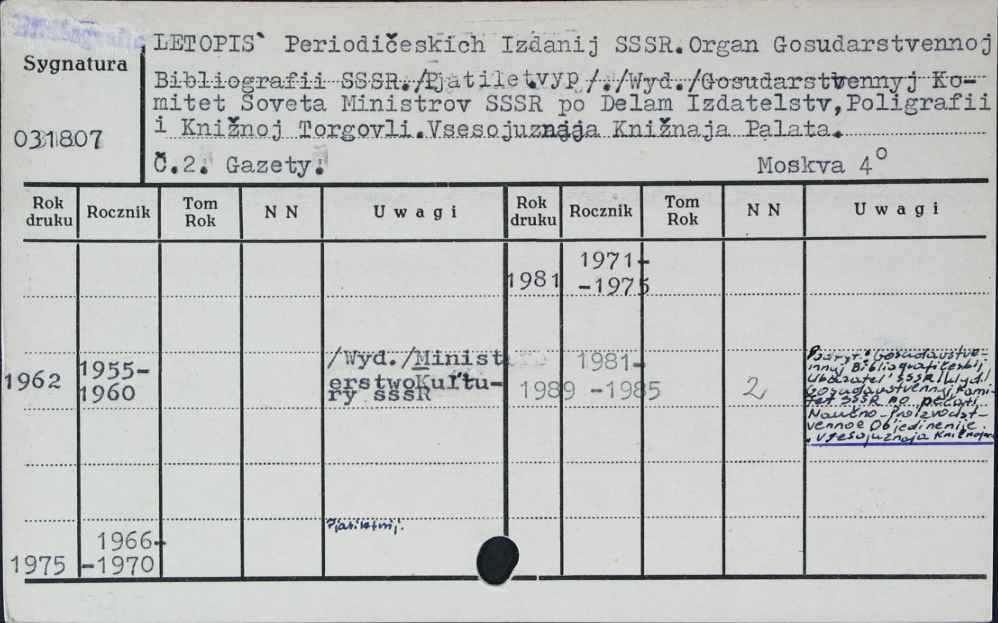 LETOPIS` Periodičeskich Izdanij SSSR.Organ Gosudarstvennoj
Sygnatura
Bibliografii SSSR./Pjatilet.vyp/./Wyd./Gosudarstvennyj Ko-
mitet Soveta Ministrov SSSR po Delam Izdatelstv,Poligrafii
031807
i Knižnoj Torgovli.Vsesojuznaja Knižnaja Palata.
Č.2. Gazety.
Moskva 4°
Rok druku Rocznik Tom Rok N N Uwagi Rok druku Rocznik Tom Rok N N Uwagi
1981 1971-
-1975
1962 1955-
1960
/Wyd./Minist
erstwoKul'tu-
ry SSSR
1989 1981-
-1985
2
Gosudarstve-
nnoj Bibliografičeskij
Ukazatel SSSR/Wyd./
Gosudarstvennyj Komi-
tet SSSR po pečati.
Naučno-Proizvodst-
vennoe Objedinenije.
Vsesojuznaja Knižnaja
1975 1966-
-1970